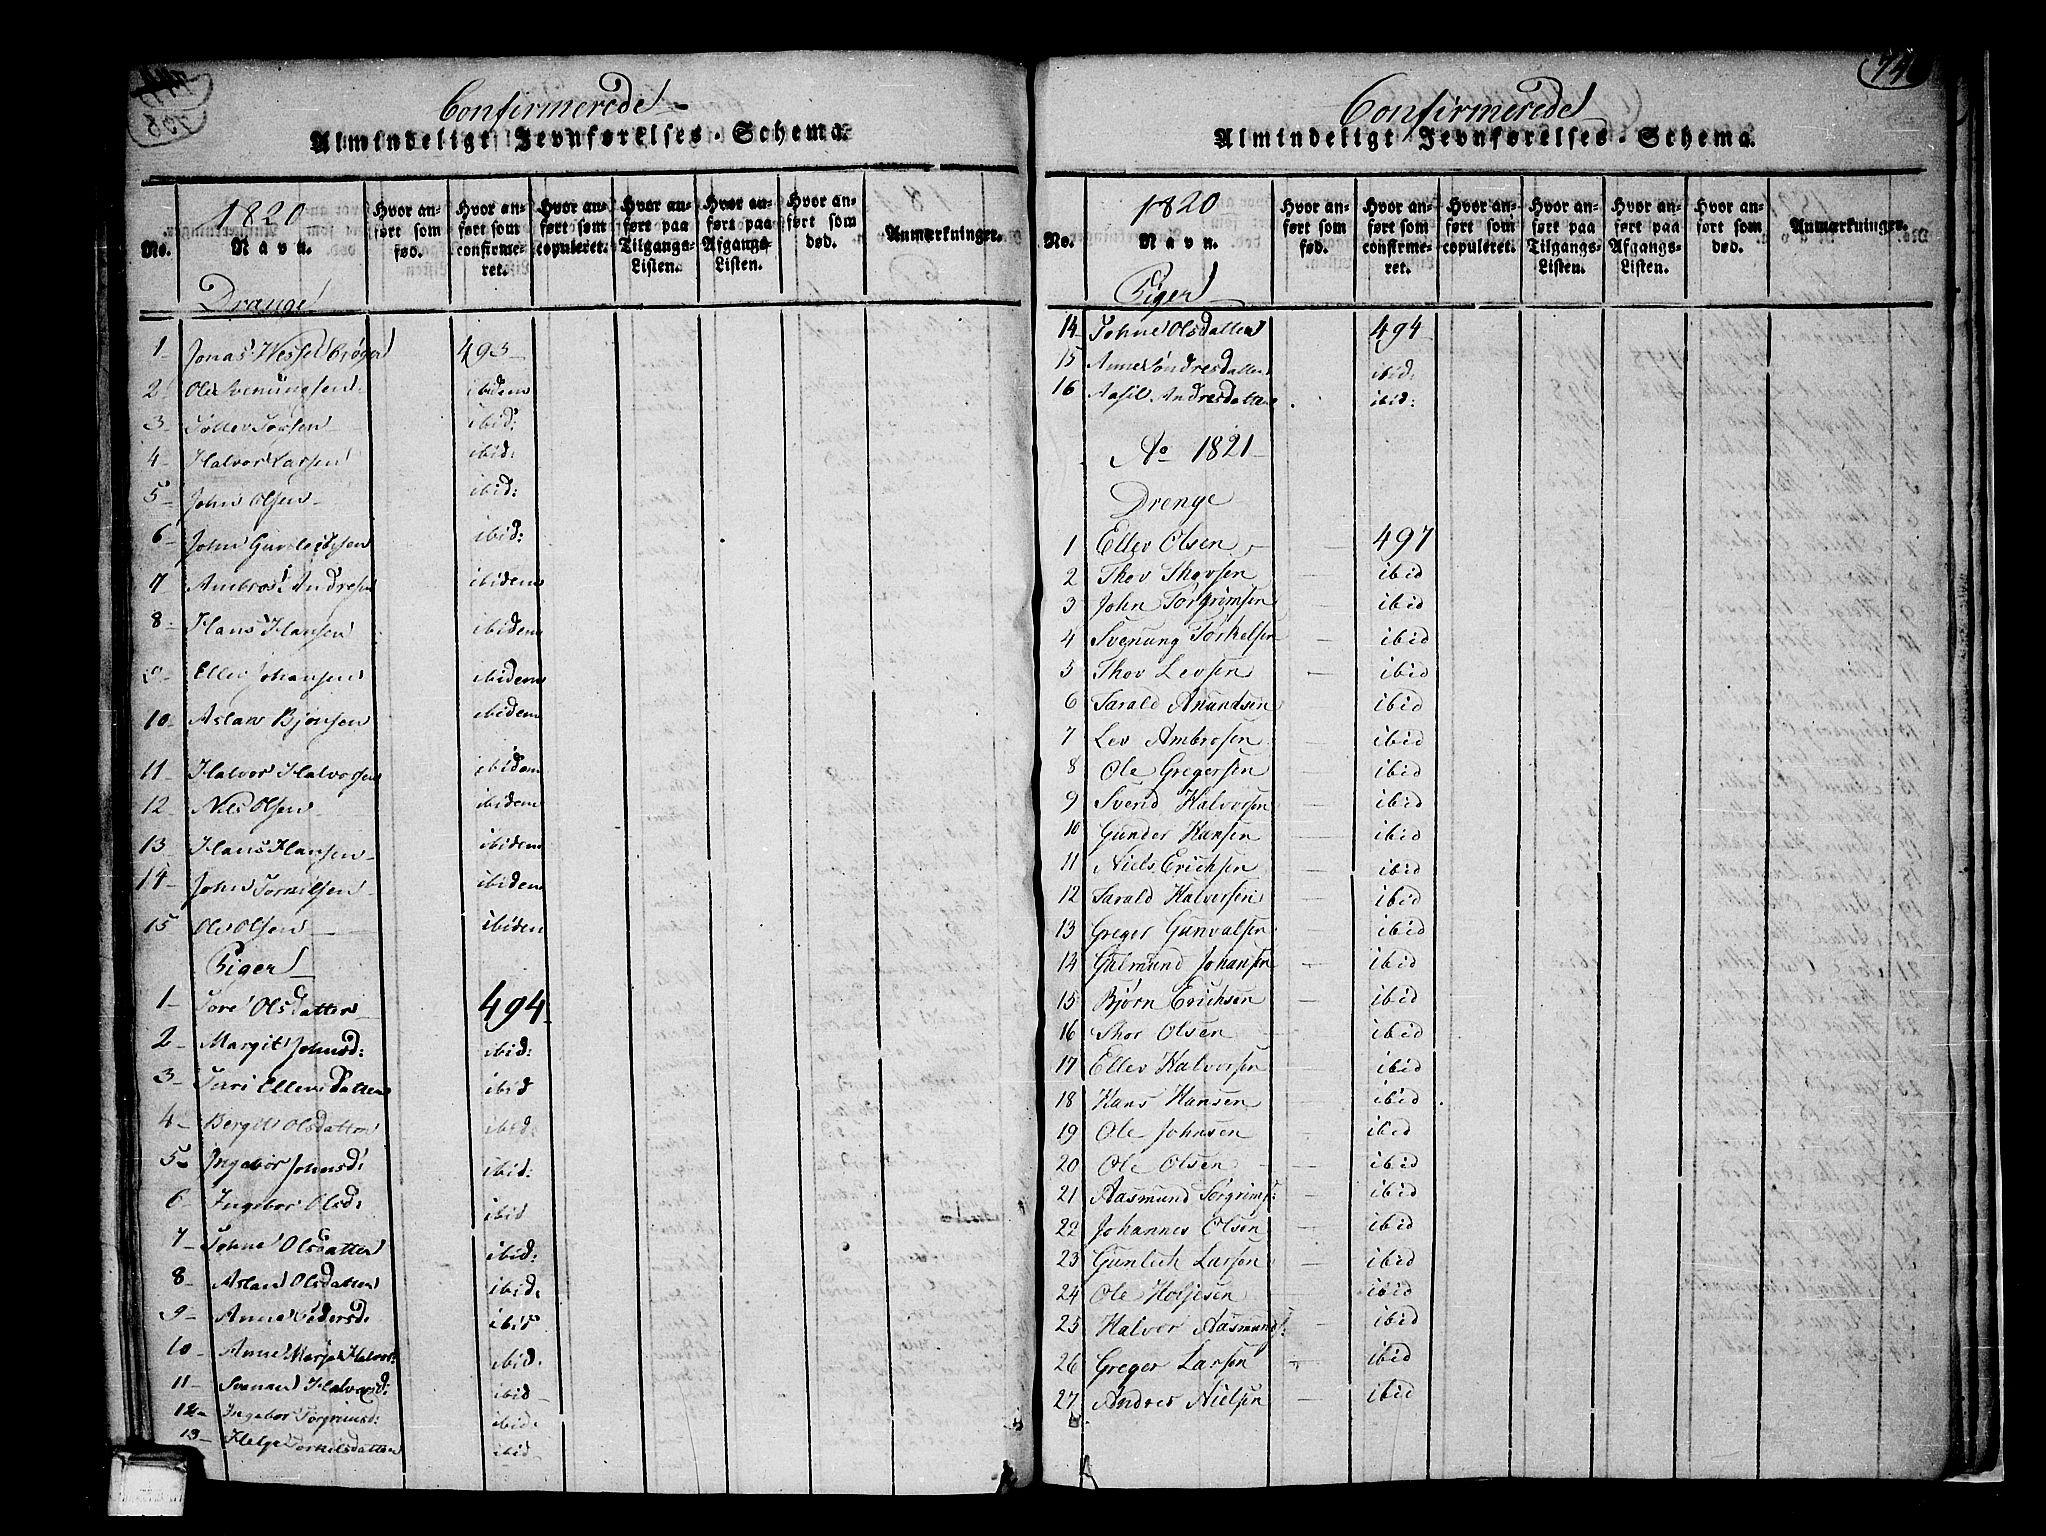 Confirmerede
Almindeligt Jevnførelses-Schema.
No.
1820
Navn.
Hvor anført som fød.
Hvor anført som confirmeret.
Hvor anført som copuleret.
Hvor anført paa Tilgangs-Listen.
Hvor anført paa Afgangs-Listen.
Hvor anført som død.
Anmærkninger.
Drange
1 Jonas Wessel Brøger 493
2 Ole Svenungsen ibidem
3 Tollev Torsen ibid:
4 Halvor Larsen ibid:
5 John Olsen ibid:
6 John Gunleksen ibid:
7 Ambros: Andresen ibidem
8 Hans Hansen ibidem
9 Ellev Johansen ibidem
10 Aslan Bjønsen ibidem
11 Halvor Halvorsen ibidem
12 Nils Olsen ibidem
13 Hans Hansen ibidem
14 John Torkilsen ibidem
15 Ole Olsen ibidem
Piger
1 Tore Olsdatter 494
2 Margit Johnsd: ibid:
3 Turi Ellevsdatter ibid
4 Bergit Olsdatter ibid:
5 Ingebor Johnsd: ibid:
6 Ingebor Olsd: ibid
7 Tohne Olsdatter ibid:
8 Aslau Olsdatter ibid:
9 Anne Pedersd: ibid
10 Anne Marja Halvor: ibid:
11 Svenau Halvorsd: ibid
12 Ingebor Torgrimsd: ibid:
13 Helge Torkilsdatter ibid
74
Confirmerede
Almindeligt Jevnførelses-Schema.
No.
1820
Navn.
Hvor anført som fød.
Hvor anført som confirmeret.
Hvor anført som copuleret.
Hvor anført paa Tilgangs-Listen.
Hvor anført paa Afgangs-Listen.
Hvor anført som død.
Anmærkninger.
Piger
14 Tohne Olsdatter 494
15 Anne Søndresdatter ibid:
16 Aasil Andresdatter ibid:
Ao 1821
Drenge
1 Ellev Olsen 497
2 Thov Thovsen ibid
3 John Torgrimsen ibid
4 Svenung Torkelsen ibid
5 Thov Levsen ibid
6 Tarald Anundsen ibid
7 Lev Ambrosen ibid
8 Ole Gregersen ibid
9 Svend Halvorsen ibid
10 Gunder Hansen ibid
11 Niels Erichsen ibid
12 Tarald Halvorsen ibid
13 Greger Gunvalsen ibid
14 Gulmund Johansen ibid
15 Bjørn Erichsen ibid
16 Thor Olsen ibid
17 Ellev Halvorsen ibid
18 Hans Hansen ibid
19 Ole Johnsen ibid
20 Ole Olsen ibid
21 Aasmund Torgrims: ibid
22 Johannes Olsen ibid
23 Gunlich Larsen ibid
24 Ole Holjesen ibid
25 Halvor Aasmunds: ibid
26 Greger Larsen ibid
27 Andres Nielsen ibid